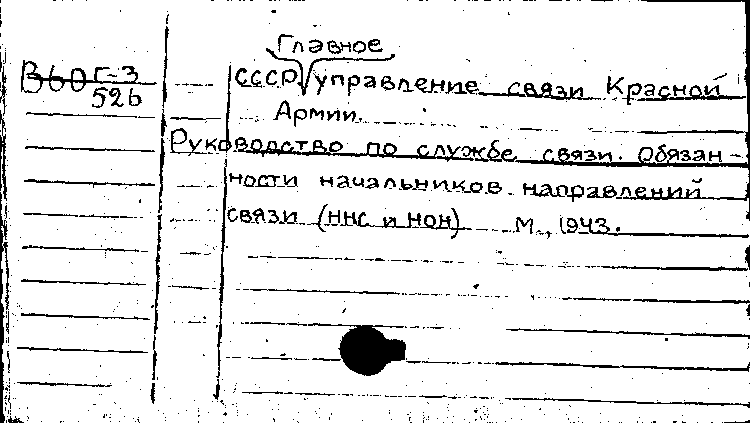 Главное
В60 Г-3 СССР управление связи Красной
526 Армии.
Руководство по службе связи. Обязан-
ности начальников направлений
связи (ННС и НОН) М., 1943.